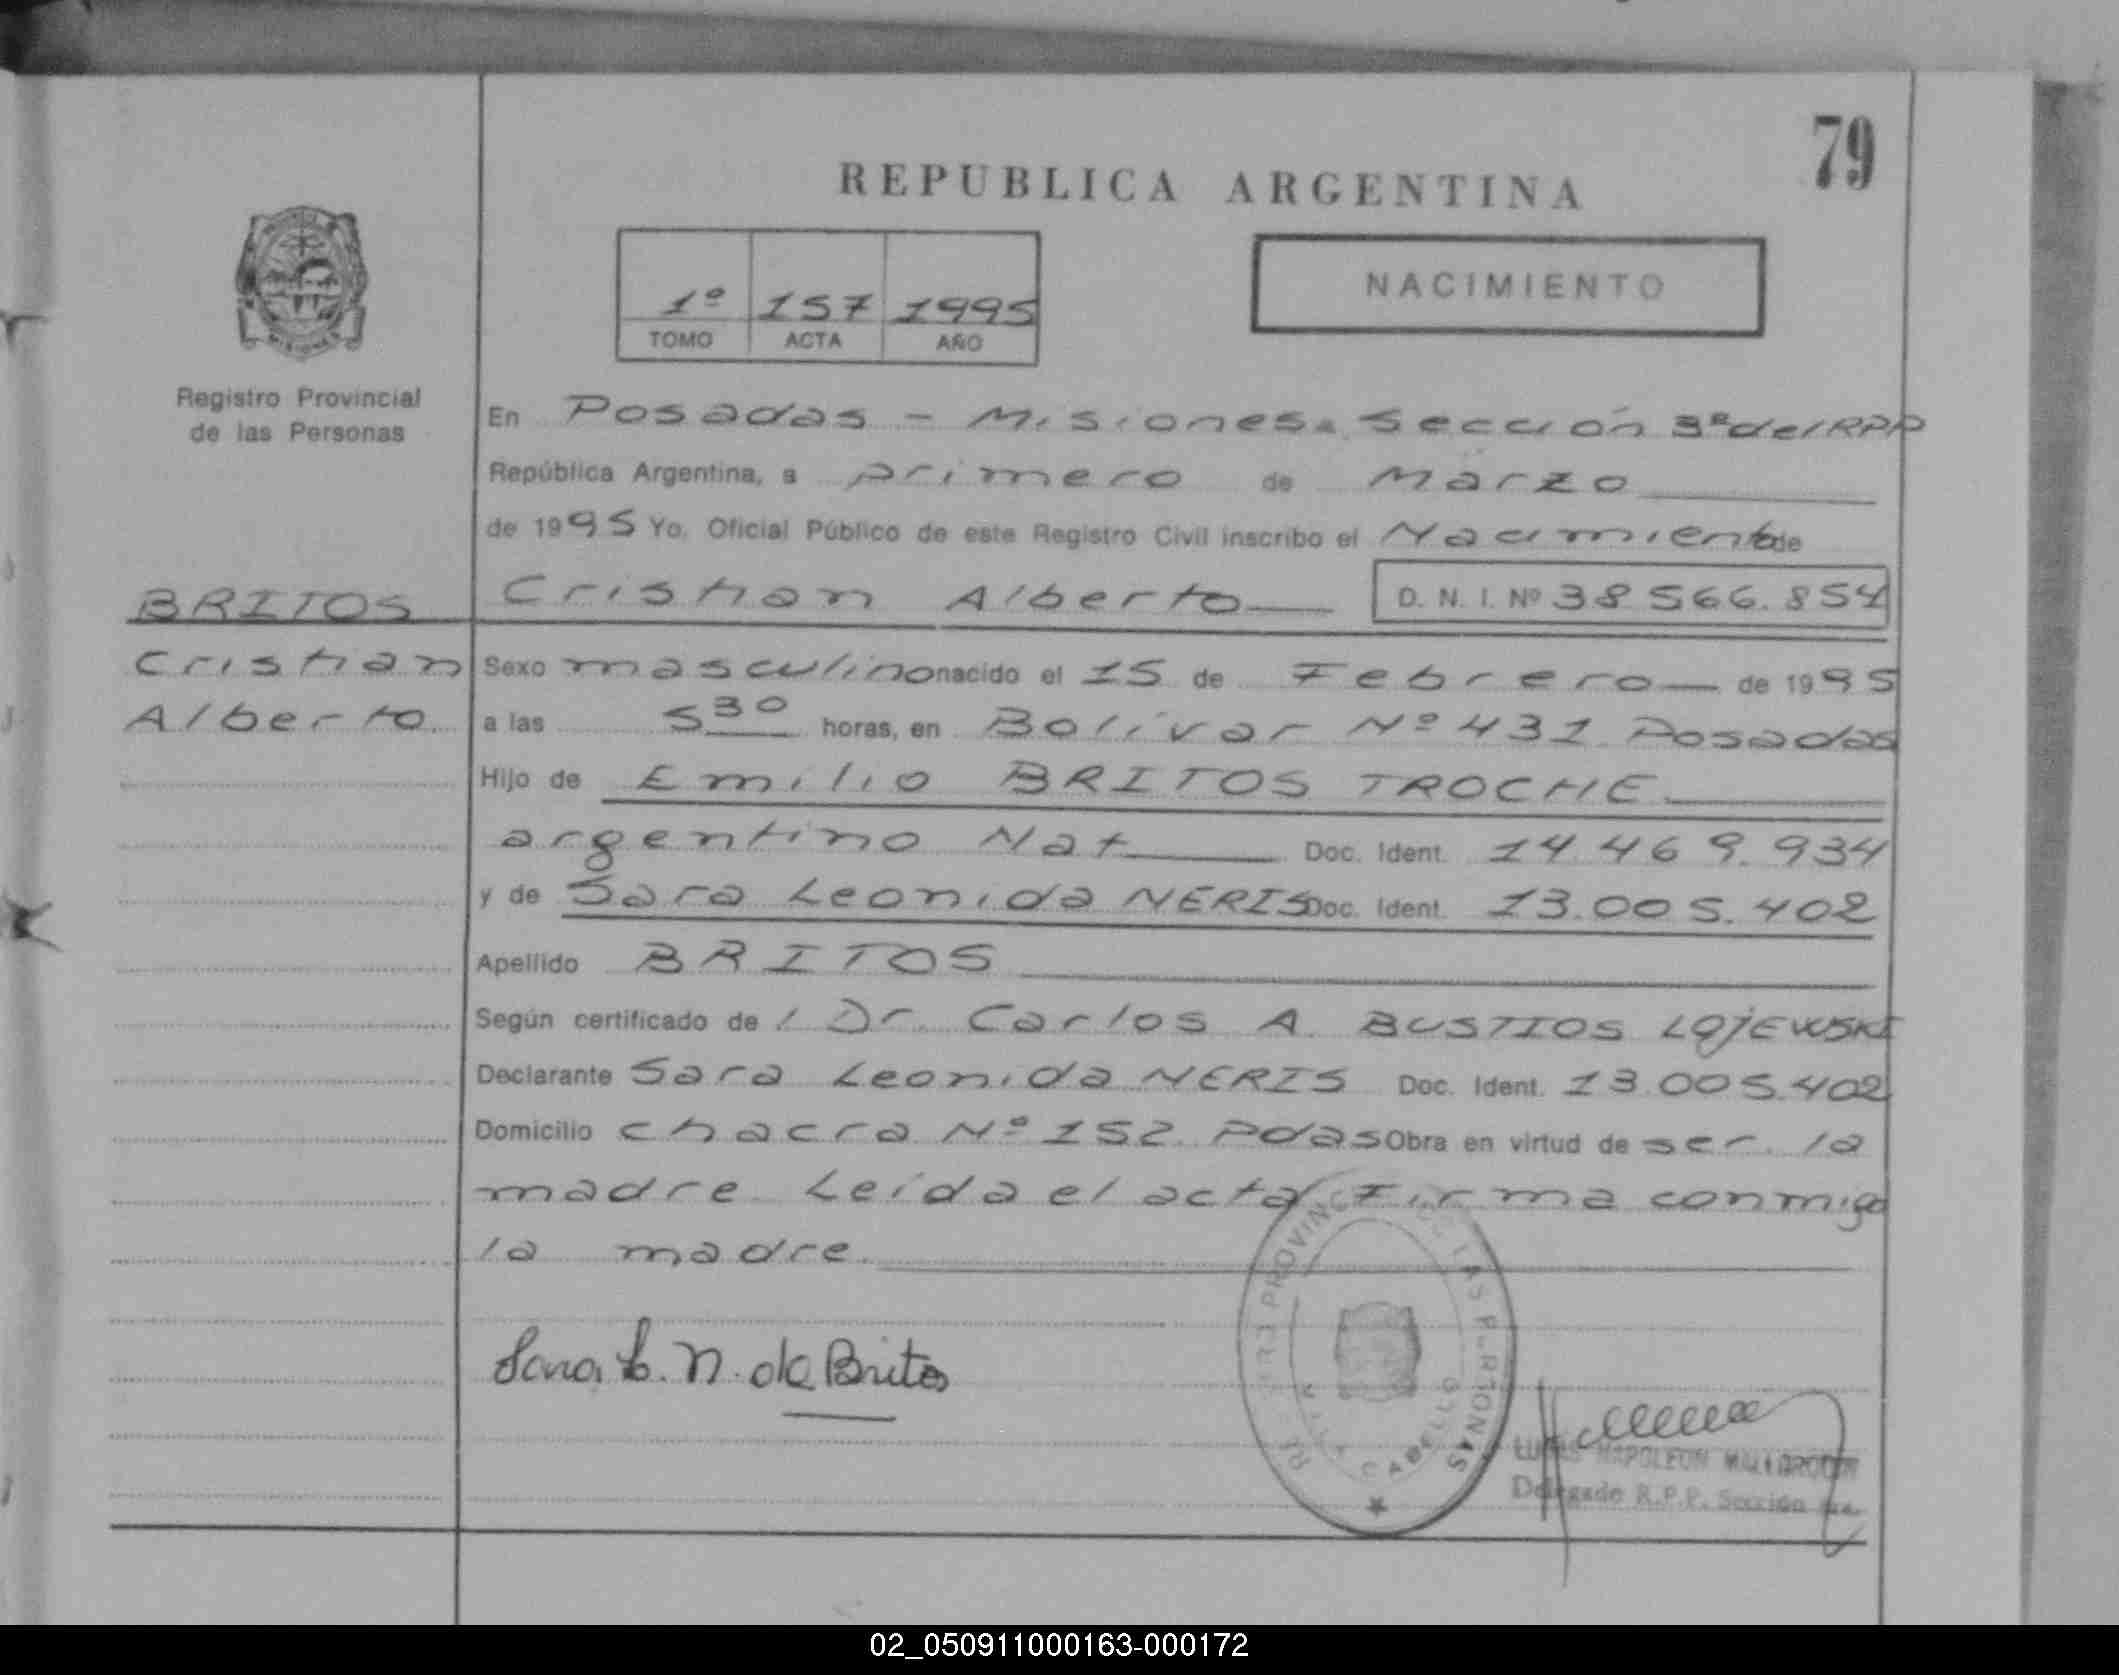 79
REPUBLICA ARGENTINA
1º 157 1995
TOMO ACTA AÑO
NACIMIENTO
MISIONES
Registro Provincial
de las Personas
En Posadas - Misiones. Sección 3ª del RPP
República Argentina, a primero de Marzo
de 1995 Yo, Oficial Público de este Registro Civil inscribo el Nacimiento de
BRITOS Cristian Alberto D. N. I. Nº 38566.854
Cristian Sexo masculino nacido el 15 de Febrero de 1995
Alberto. a las 5 30 horas, en Bolívar Nº 431 Posadas
Hijo de Emilio BRITOS TROCHE
argentino Nat Doc. Ident. 14.469.934
y de Sara Leonida NERIS Doc. Ident. 13.005.402
Apellido BRITOS
Según certificado de / Dr. Carlos A. BUSTIOS LOJEWSKI
Declarante Sara Leonida NERIS Doc. Ident. 13.005.402
Domicilio Chacra Nº 152 Pdas Obra en virtud de ser la
madre. Leída el acta Firma conmigo
la madre.
Sara L. N. de Britos
LAS PERSONAS
CABELLO
NAPOLEON
Delegado R.P.P. Sección
02_050911000163-000172